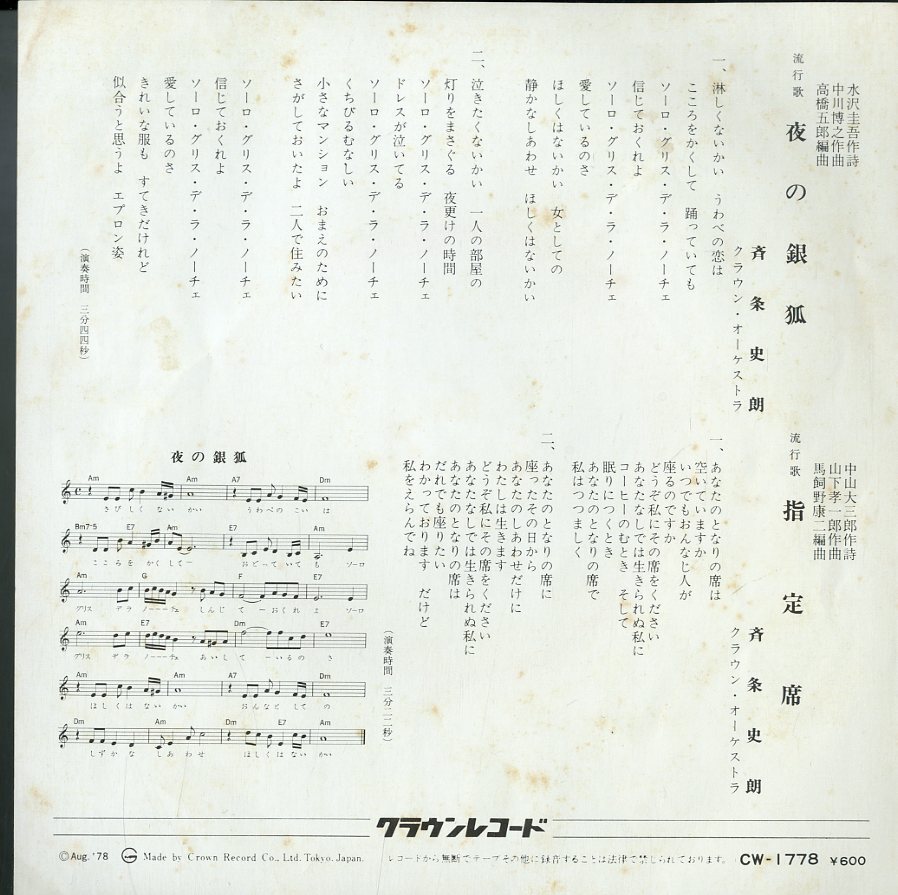 水沢圭吾作詩
中川博之作曲
高橋五郎編曲
流行歌 夜の銀狐
斉条史朗
クラウン・オーケストラ
一、淋しくないかい うわべの恋は
こころをかくして 踊っていても
ソーロ・グリス・デ・ラ・ノーチェ
信じておくれよ
ソーロ・グリス・デ・ラ・ノーチェ
愛しているのさ
ほしくはないかい 女としての
静かなしあわせ ほしくはないかい
二、泣きたくないかい 一人の部屋の
灯りをまさぐる 夜更けの時間
ソーロ・グリス・デ・ラ・ノーチェ
ドレスが泣いてる
ソーロ・グリス・デ・ラ・ノーチェ
くちびるむなしい
小さなマンション おまえのために
さがしておいたよ 二人で住みたい
ソーロ・グリス・デ・ラ・ノーチェ
信じておくれよ
ソーロ・グリス・デ・ラ・ノーチェ
愛しているのさ
きれいな服も すてきだけれど
似合うと思うよ エプロン姿
(演奏時間 三分四四秒)
中山大三郎作詩
山下孝一郎作曲
馬飼野康二編曲
流行歌 指定席
斉条史朗
クラウン・オーケストラ
一、あなたのとなりの席は
空いていますか
いつでもおんなじ人が
座るのですか
どうぞ私にその席をください
あなたなしでは生きられぬ私に
コーヒーのむとき そして
眠りにつくとき
あなたのとなりの席で
私はつつましく
二、あなたのとなりの席に
座ったその日から
あなたのしあわせだけに
わたしは生きます
どうぞ私にその席をください
あなたなしでは生きられぬ私に
あなたのとなりの席は
だれでも座りたい
わかっております だけど
私をえらんでね
(演奏時間 三分二二秒)
夜の銀狐
Am A7 Dm
さびしく ない かい うわべの こい は
Bm7-5 E7 Am Am
こころを かくして ー おどって いて も ソーロ
Am G F E7
グリス デラ ノーーーチェ しんじ て ーおくれ よ ソーロ
Am E7 Dm E7
グリス デラ ノーーーチェ あいし て ーいるの さ
Am A7 Dm
ほしくは ない かい おんなと して の
Dm Am Dm E7 Am
しずかな しあわせ ほしくは ない かい
クラウンレコード
©Aug. '78 Made by Crown Record Co., Ltd. Tokyo. Japan. レコードから無断でテープその他に録音することは法律で禁じられております。 CW-1778 ¥600